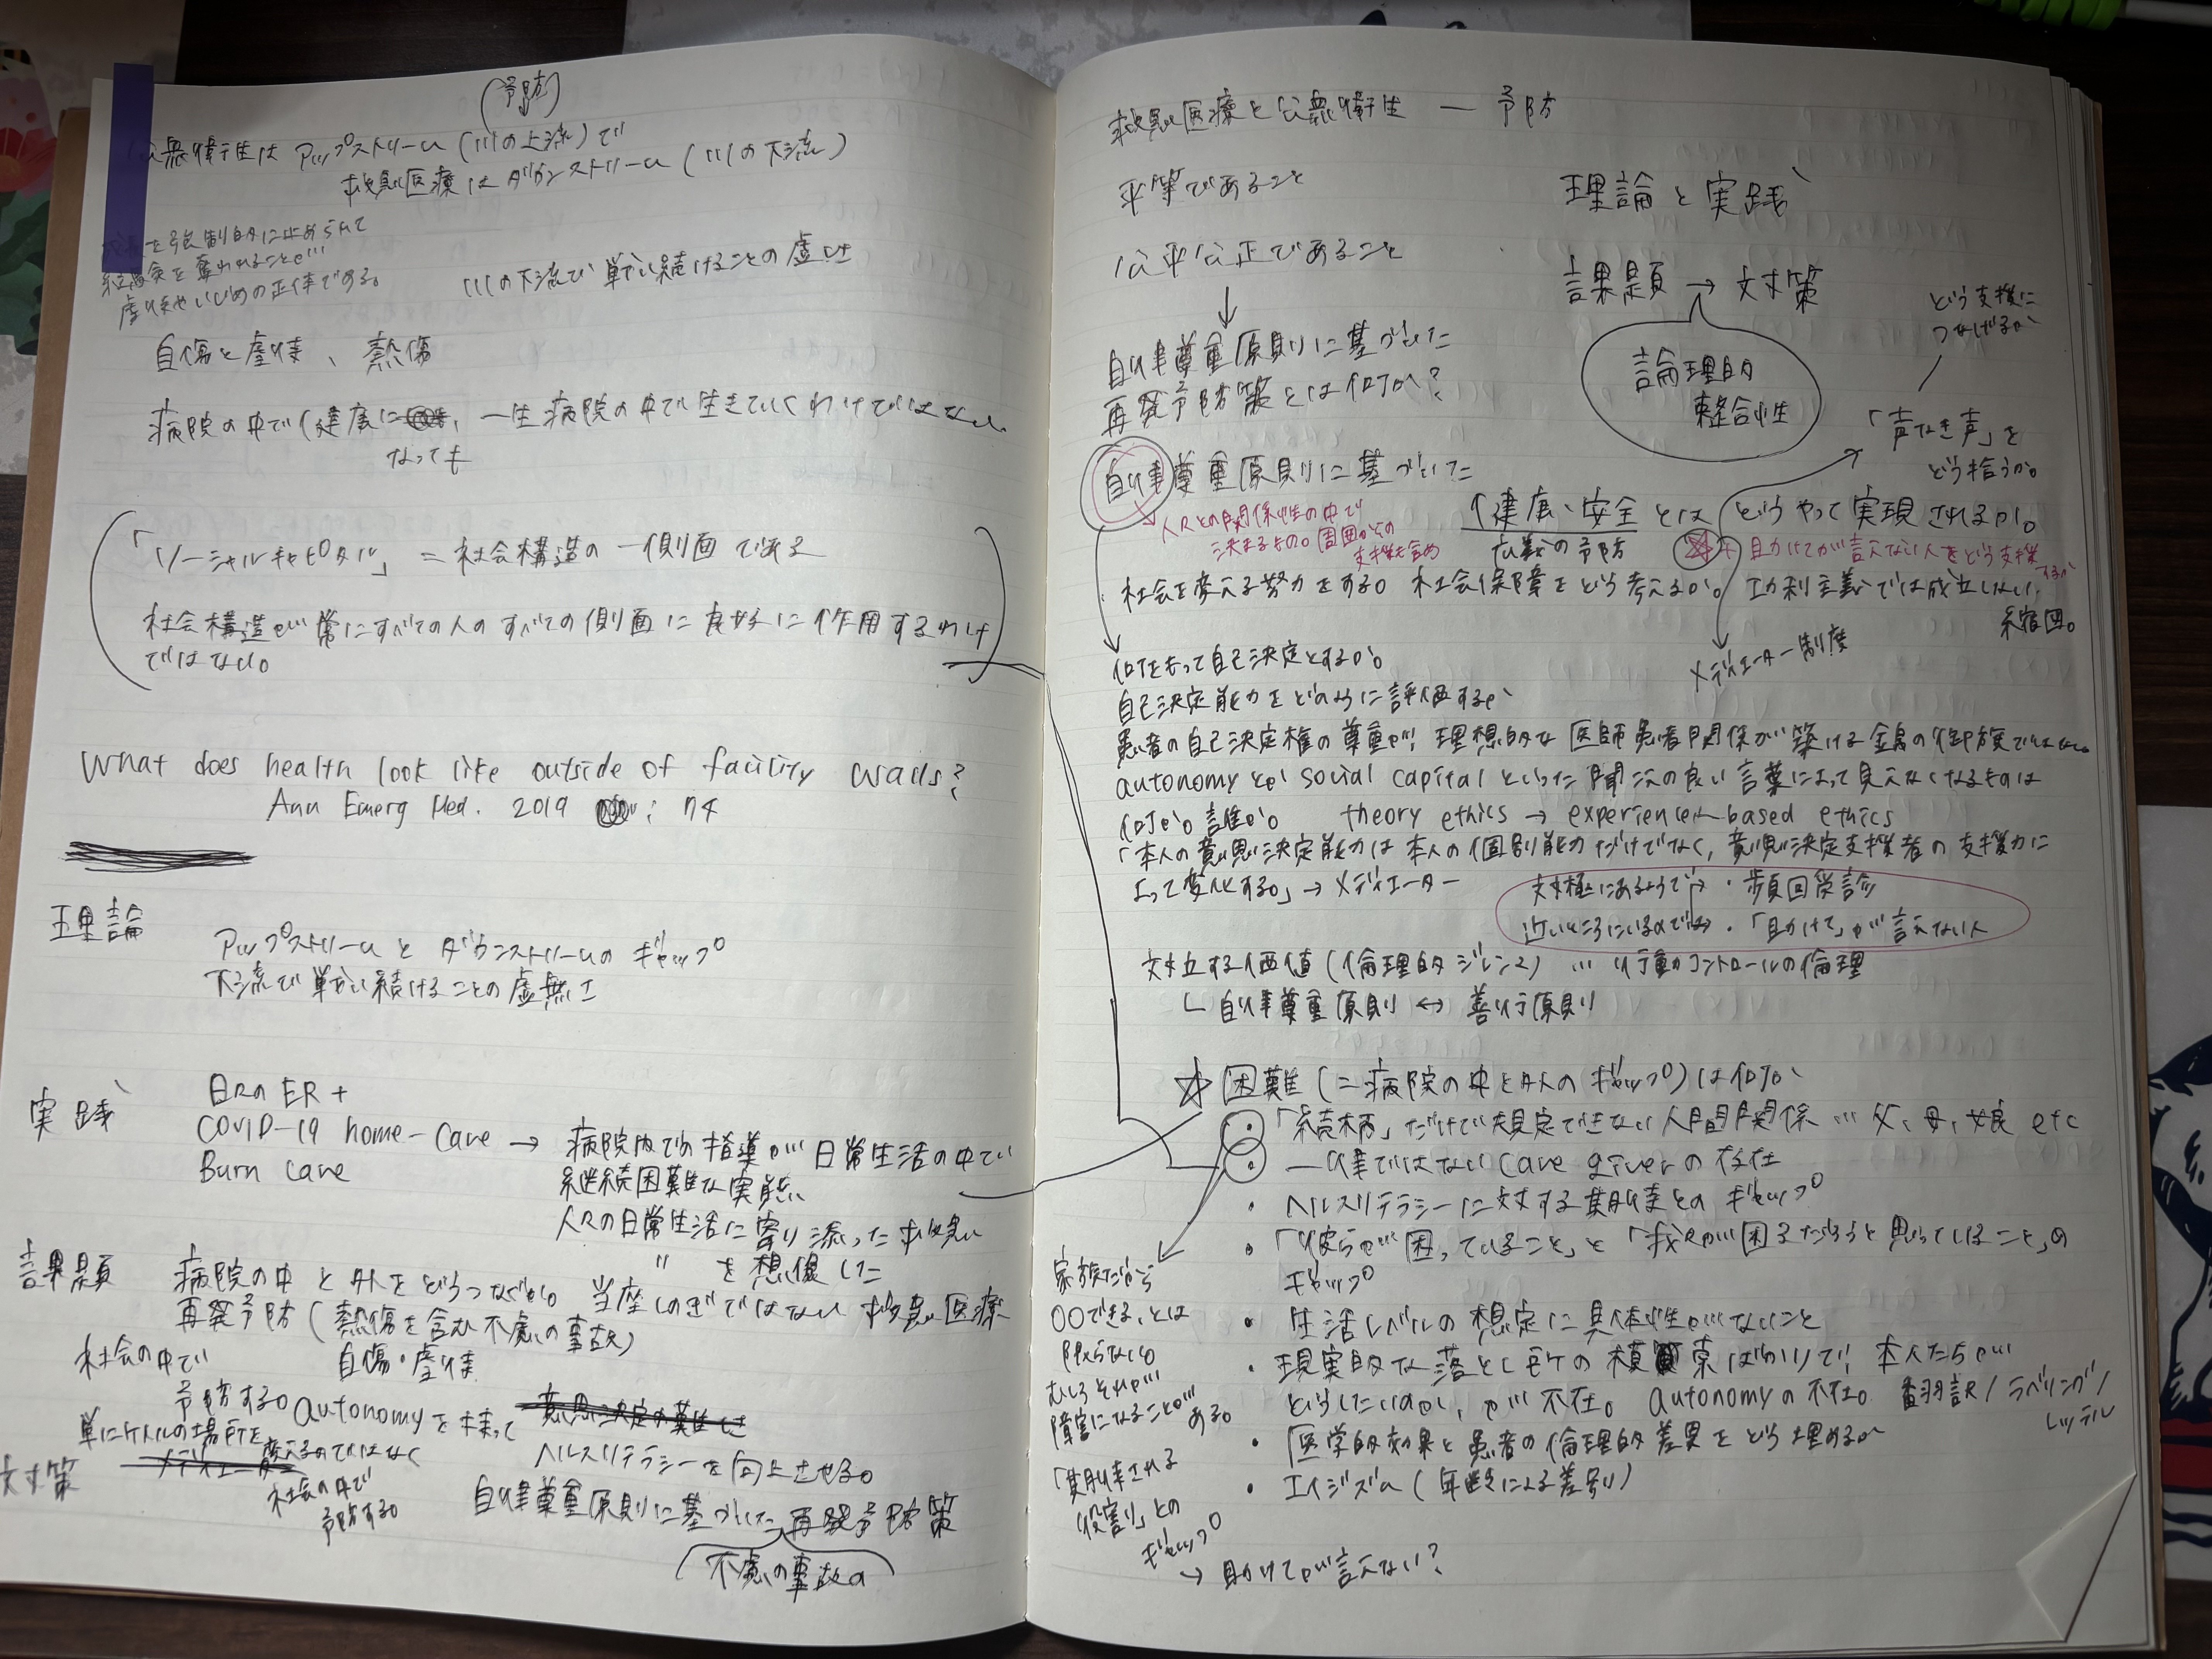 (予防)
公衆衛生は アップストリーム (川の上流) で
救急医療は ダウンストリーム (川の下流)
を強制的に止められて
機会を奪われることが
虐待やいじめの正体である。
川の下流で戦い続けることの虚しさ
自傷と虐待、熱傷
病院の中で健康に
なっても
、一生病院の中で生きていくわけではない。
「ソーシャルキャピタル」= 社会構造の一側面である
社会構造が常にすべての人のすべての側面に良好に作用するわけ
ではない。
What does health look like outside of facility walls?
Ann Emerg Med. 2019 ; 74
理論
アップストリームとダウンストリームのギャップ
下流で戦い続けることの虚無さ
実践
日々のER +
COVID-19 home-care → 病院内での指導が日常生活の中で
Burn care
継続困難な実態
人々の日常生活に寄り添った救急
〃 を想像した
課題
病院の中と外をどうつなぐか。当座しのぎではない救急医療
再発予防 (熱傷を含む不慮の事故)
自傷・虐待
社会の中で
予防する。
autonomyを持って
意思決定の難しさ
単にケアの場所を
変えるのではなく
社会の中で
予防する
ヘルスリテラシーを向上させる。
対策
メディエーター
自律尊重原則に基づいた再発予防策
不慮の事故の
救急医療と公衆衛生 — 予防
平等であること
公平公正であること
↓
自律尊重原則に基づいた
再発予防策とは何か?
理論と実践
課題 → 対策
論理的
整合性
どう支援に
つなげるか
「声なき声」を
どう拾うか。
自律尊重原則に基づいた
人々との関係性の中で
決まるもの。周囲からの
支援も含め
健康、安全とは どうやって実現されるか。
広義の予防
☆ 助けてが言えない人をどう支援するか
社会を変える努力をする。社会保障をどう考えるか。功利主義では成立しない
縮図。
メディエーター制度
何をもって自己決定とするか。
自己決定能力をどのように評価するか
患者の自己決定権の尊重が理想的な医師患者関係が築ける金の御旗ではない。
autonomyとか social capital といった聞こえの良い言葉によって見えなくなるものは
何か。誰か。 theory ethics → experience-based ethics
「本人の意思決定能力は本人の個別能力だけでなく、意思決定支援者の支援力に
よって変化する。」→ メディエーター
対極にあるようで ・頻回受診
近いところにいるのでは ・「助けて」が言えない人
対立する価値 (倫理的ジレンマ) … 行動コントロールの倫理
└ 自律尊重原則 ↔ 善行原則
☆ 困難 (= 病院の中と外のギャップ) は何か
・「続柄」だけで規定できない人間関係 … 父、母、娘 etc
・一律ではない care giver の存在
・ヘルスリテラシーに対する期待とのギャップ
・「彼らが困っていること」と「我々が困るだろうと思っていること」の
ギャップ
・生活レベルの想定に具体性がないこと
・現実的な落とし所の模索ばかりで本人たちが
どうしたいのか、が不在。autonomyの不在。 翻訳/ラベリング/
レッテル
・医学的効果と患者の倫理的差異をどう埋めるか
・エイジズム (年齢による差別)
家族だから
〇〇できる、とは
限らない。
むしろそれが
障害になることがある。
「期待される
役割」との
ギャップ
→ 助けてが言えない?